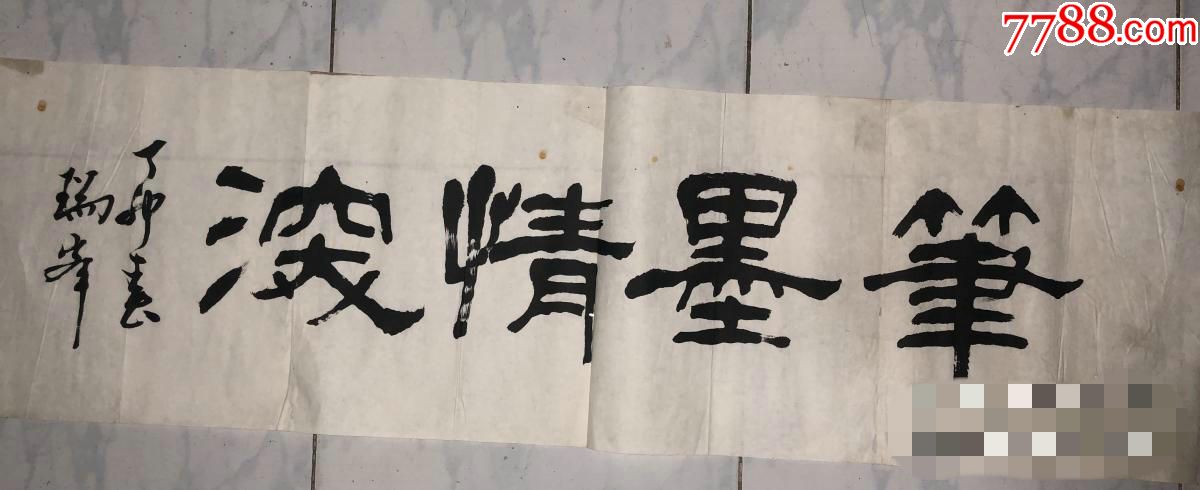 筆墨情深
丁卯春
瑞峯
7788.com